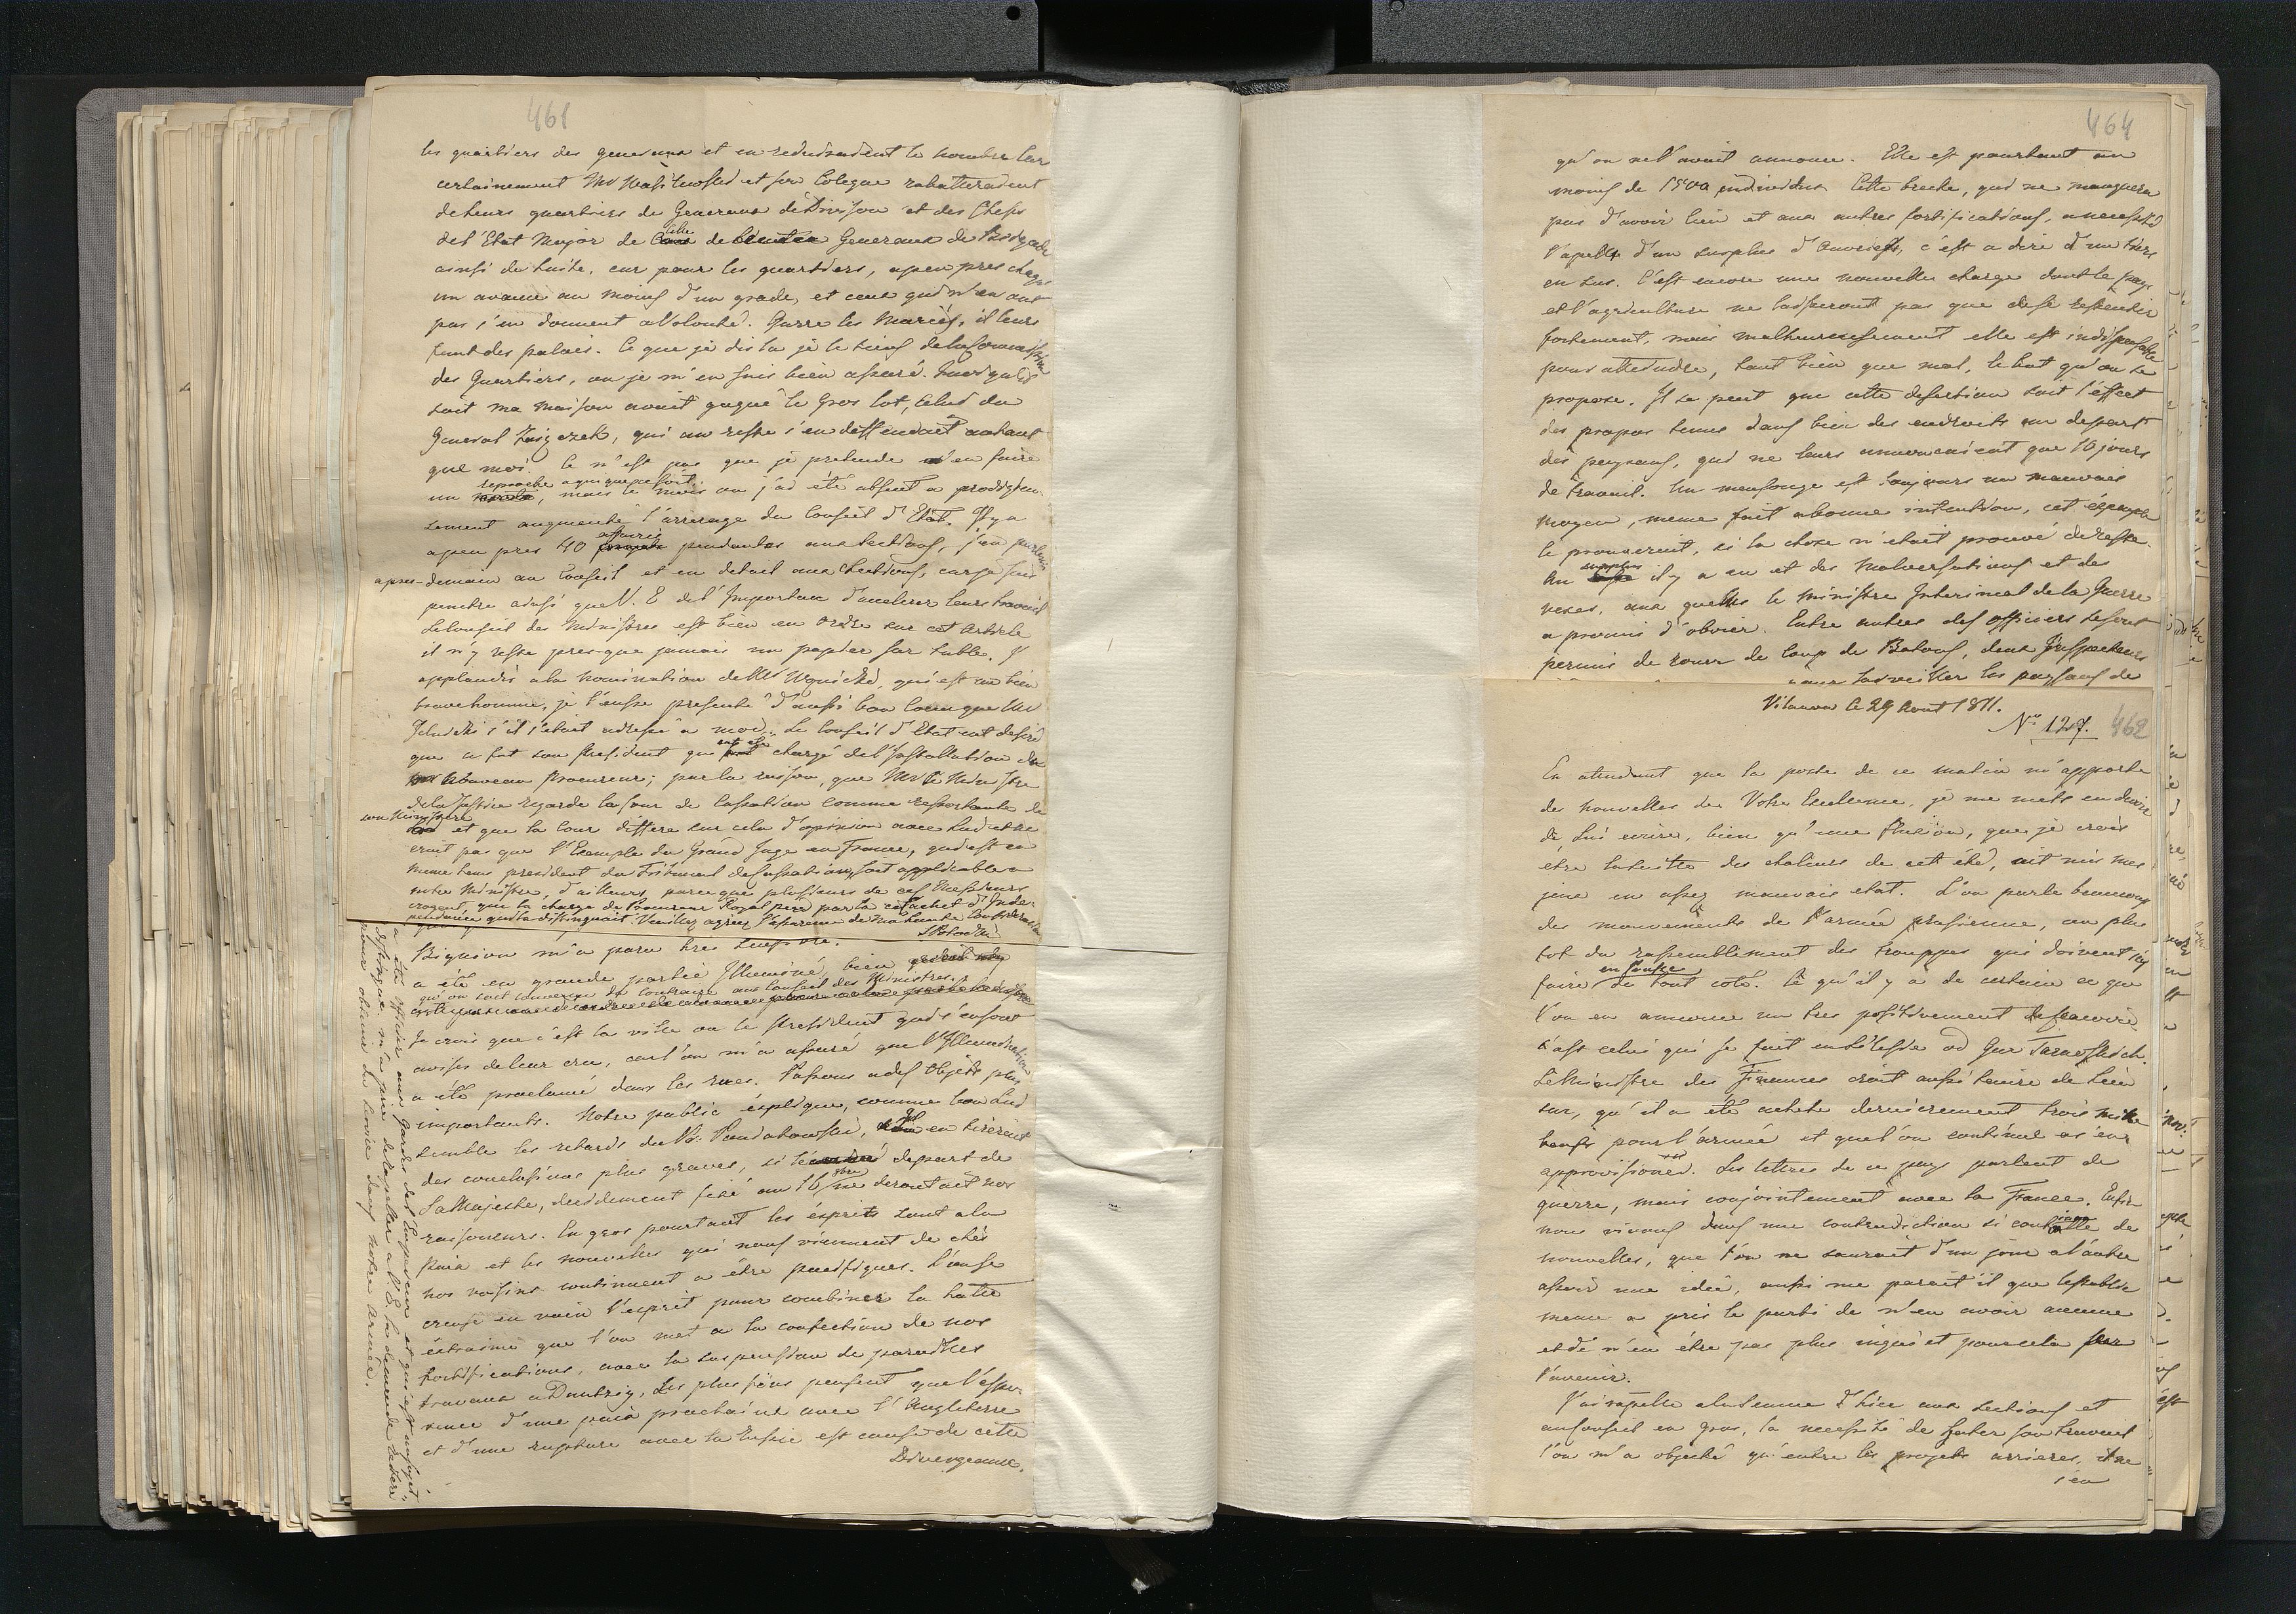 461
les quartiers des generaux et en reduisaient le nombre car
certainement Mr et son Colegue rabatteraient
de leurs quartiers de Generaux de Division et des Chefs
de l'Etat Major de celle de Generaux de Brigade
ainsi de suite, car pour les quartiers, a peu pres chaqu
un avance au moins d'un grade, et ceux qui n'en ont
pas s'en donnent a Volonté. Garre les Mariés, il leurs
faut des palais. Ce que je dis la je le tiens de la
des Quartiers, ou je m'en suis bien assuré.
soit ma maison avait gagné le Gros lot, celui du
General Zaigczek, qui au reste s'en deffendait autant
que moi. Ce n'est pas que je pretende en faire
un reproche a qui que ce soit, mais le mois ou j'ai été absent a prodigieu-
sement augmenté l'arrerage du Conseil d'Etat. Il y a
a peu pres 40 affaires pendantes aux Sections, j'en parlerai
apres-demain au Conseil et en detail aux Sections, car je suis
penetré ainsi que V. E. de l'Importance d'accelerer leurs travail
Le Conseil des Ministres est bien en ordre sur cet Article
il n'y reste presque jamais un papier sur table. J'
applaudis a la nomination de Mr Wgnicki, qui est un bien
brave homme, je l'eusse presenté d'aussi bon Coeur que Mr
s'il s'etait adressé a moi. Le Conseil d'Etat eut desiré
que ce fut son President qui eut été chargé de l'Installation du
nouveau Procureur; par la raison, que Mr le Ministre
de la Justice regarde la Cour de Cassation comme ressortante de
son Ministere et que la Cour differe sur cela d'opinion avec lui et ne
croit pas que l'Exemple du Grand Juge en France, qui est en
meme tems president du Tribunal de Cassation, soit applicable a
notre Ministre, d'ailleurs, parce que plusieurs de ces Messieurs
croyent, que la charge de Procureur Royal perd par la ce Cachet d'Inde-
pendance qui la distinguait. Veuillez agréer l'assurance de Ma haute Consideration
SPotocki
Bignion m'a paru tres
a été en grande partie Illuminé, bien
qu'on soit convenu du contraire au Conseil des Ministres.
Je crois que c'est la ville ou le President qui s'en sont
avisés de leur cru, car l'on m'a assuré que l'Illumination
a été proclamé dans les rues. Passons a des Objets plus
importants. Notre public explique, comme bon lui
semble les retards du Pce Poniatowski, Il en tirerait
des conclusions plus graves, si le depart de
Sa Majesté, decidement fixé au 16 7bre ne deroutait nos
raisoneurs. En gros pourtant les ésprits sont a la
Paix et les nouvelles qui nous viennent de chés
nos voisins continuent a être pacifiques. L'on se
creuse en vain l'esprit pour combiner la hate
éxtrême que l'on met a la confection de nos
fortifications, avec la suspension de pareilles
travaux a Dantzig, Les plus fins pensent que l'éspe-
rance d'une paix prochaine avec l'Angleterre
et d'une rupture avec la Russie est cause de cette
Divergeance.
a été officier aux Gardes de l'Empereur et qui est
distingué, m'a prié de rapeller a V. E. la demande
pour obtenir du service dans notre armée.
464
qu'on ne l'avait annonce. Elle est pourtant au
moins de 1500 individus. Cette breche, qui ne manquera
pas d'avoir lieu et aux autres fortifications, a necessité
l'apelle d'un surplus d'Ouvriers, c'est a dire d'un tiers
en sus. C'est encore une nouvelle charge dont le pays
et l'agriculture ne laisseront pas que de se ressentir
fortement, mais malheureusement elle est indispensable
pour atteindre, tant bien que mal, le but qu'on se
propose. Il se peut que cette desertion soit l'effet
des propos tenus dans bien des endroits au depart
des paysans, qui ne leurs annoncaient que 10 jours
de travail. Un mensonge est toujours un mauvais
moyen, meme fait a bonne intention, cet éxemple
le prouverait, si la chose n'etait prouvé de reste.
Au surplus il y a eu et des Malversations et des
vexes, aux quelles le Ministre Interimal de la Guerre
a promis d'obvier. Entre autres des officiers se sont
permis de rouer de coup de Batons, deux Inspecteurs
pour surveiller les paysans de
Vilanow le 29 Aout 1811.
No 127. 462
En atendant que la poste de ce matin m'apporte
de nouvelles de Votre Excellence, je me mets en devoir
de Lui ecrire, bien qu'une fluxion, que je crois
etre la suite des chaleurs de cet été, ait mis mes
yeux en assez mauvais etat. L'on parle beaucoup
des mouvements de l'armée prussienne, ou plus
tot du rassemblement des trouppes qui doivent s'y
faire en Prusse de tout coté. Ce qu'il y a de certain ce que
l'on en annonce un tres positivement
c'est celui qui se fait en Silesie
Le Ministre des Finances croit aussi tenir de lieu
sur, qu'il a été acheté dernierement trois mille
beufs pour l'armée et que l'on continue a s'en
approvisioner. Les lettres de ce pays parlent de
guerre, mais conjointement avec la France. Enfin
nous vivons dans une contradiction si continuelle de
nouvelles, que l'on ne saurait d'un jour a l'autre
asseoir une idée, aussi me parait il que le public
meme a pris le parti de n'en avoir aucune
et de n'en être pas plus inquiet pour cela sur
l'avenir.
J'ai rapellé a la seance d'hier aux Sections et
au Conseil en gros, la necessité de hater son travail
l'on m'a objecté qu'entre les projets arrierés, il ne
s'en